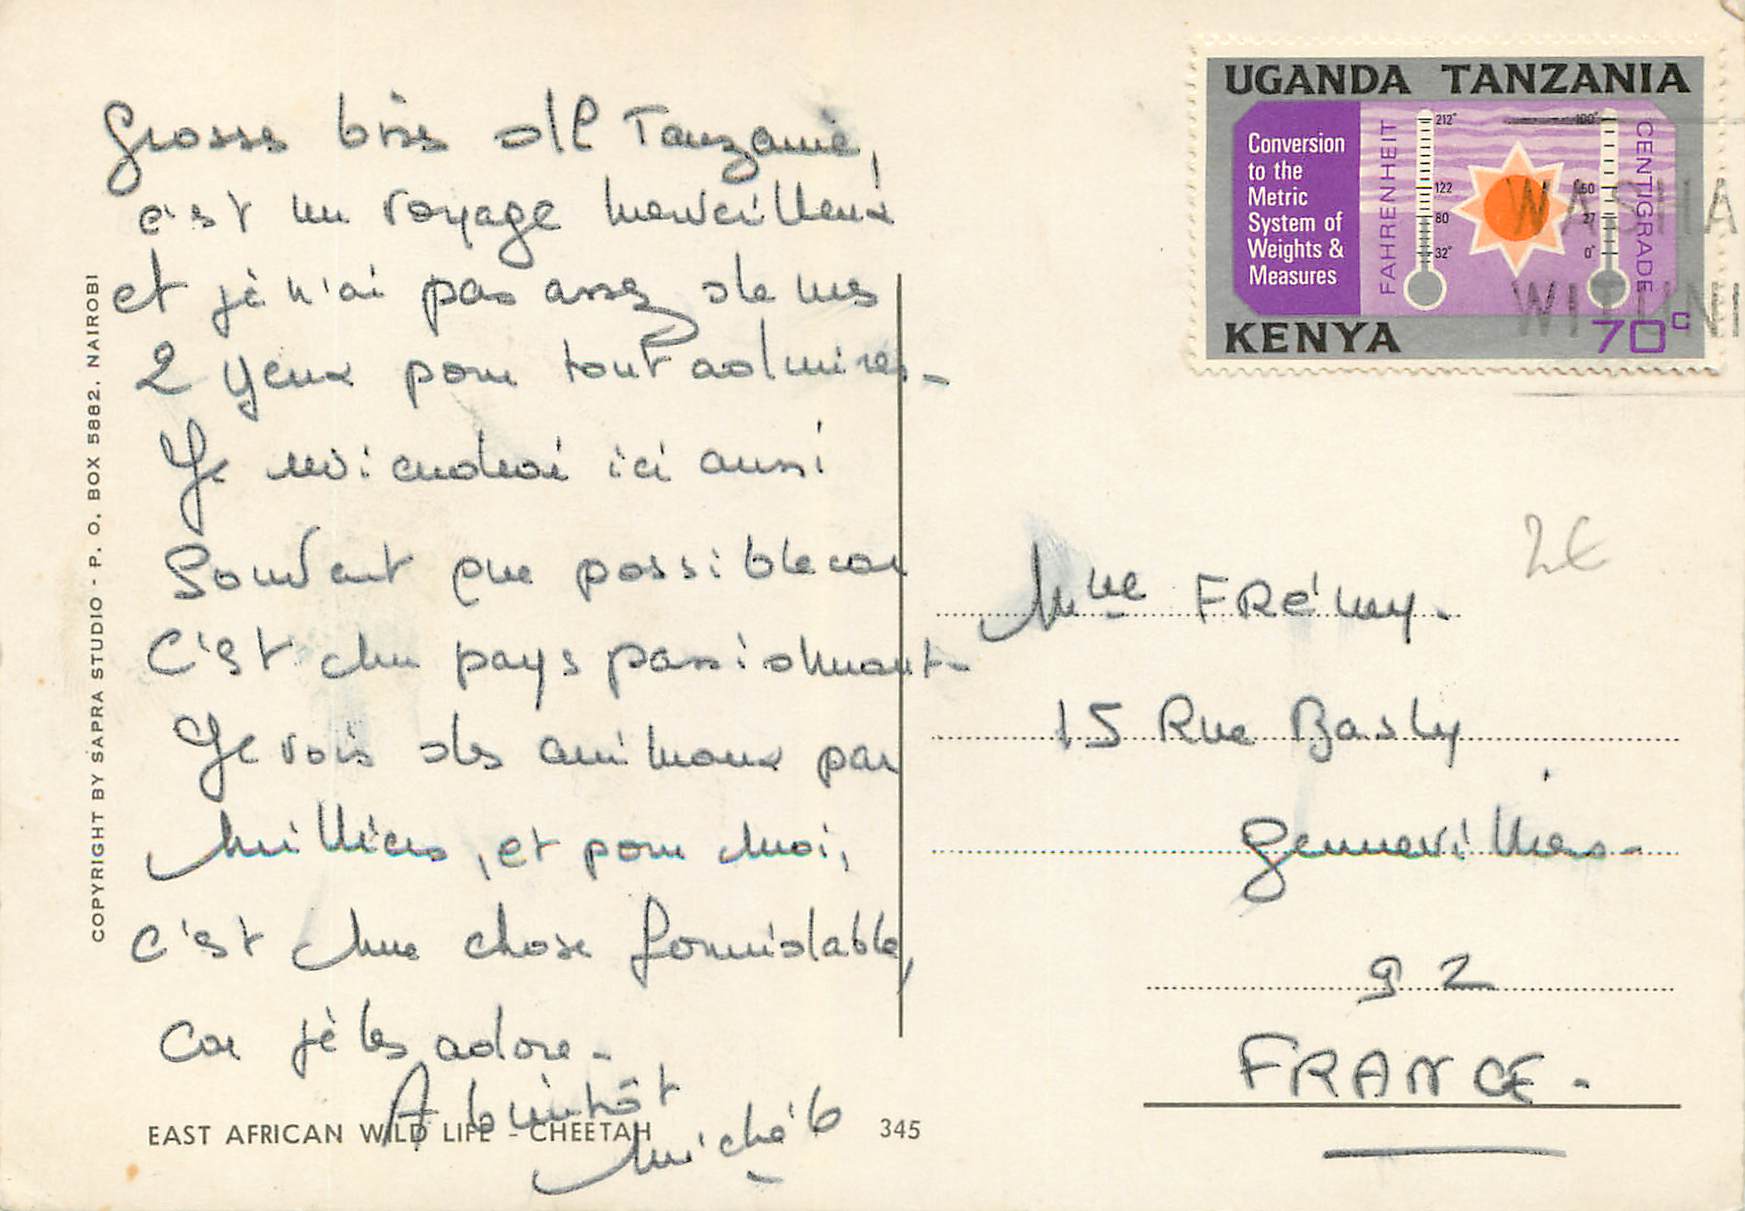 COPYRIGHT BY SAPRA STUDIO - P. O. BOX 5882. NAIROBI
Grosses bises de Tanzanie,
c'est un voyage merveilleux
et je n'ai pas assez de mes
2 yeux pour tout admirer.
Je reviendrai ici aussi
souvent que possible car
c'est un pays passionnant.
Je vois des animaux par
milliers, et pour moi,
c'est une chose formidable,
car je les adore.
A bientôt
Michèle
EAST AFRICAN WILD LIFE - CHEETAH 345
UGANDA TANZANIA
Conversion
to the
Metric
System of
Weights &
Measures
FAHRENHEIT
212°
122
80
32°
100°
50
27
0°
CENTIGRADE
KENYA 70c
2€
Mme FRéMY.
15 Rue Basly
Gennevilliers.
92
FRANCE.